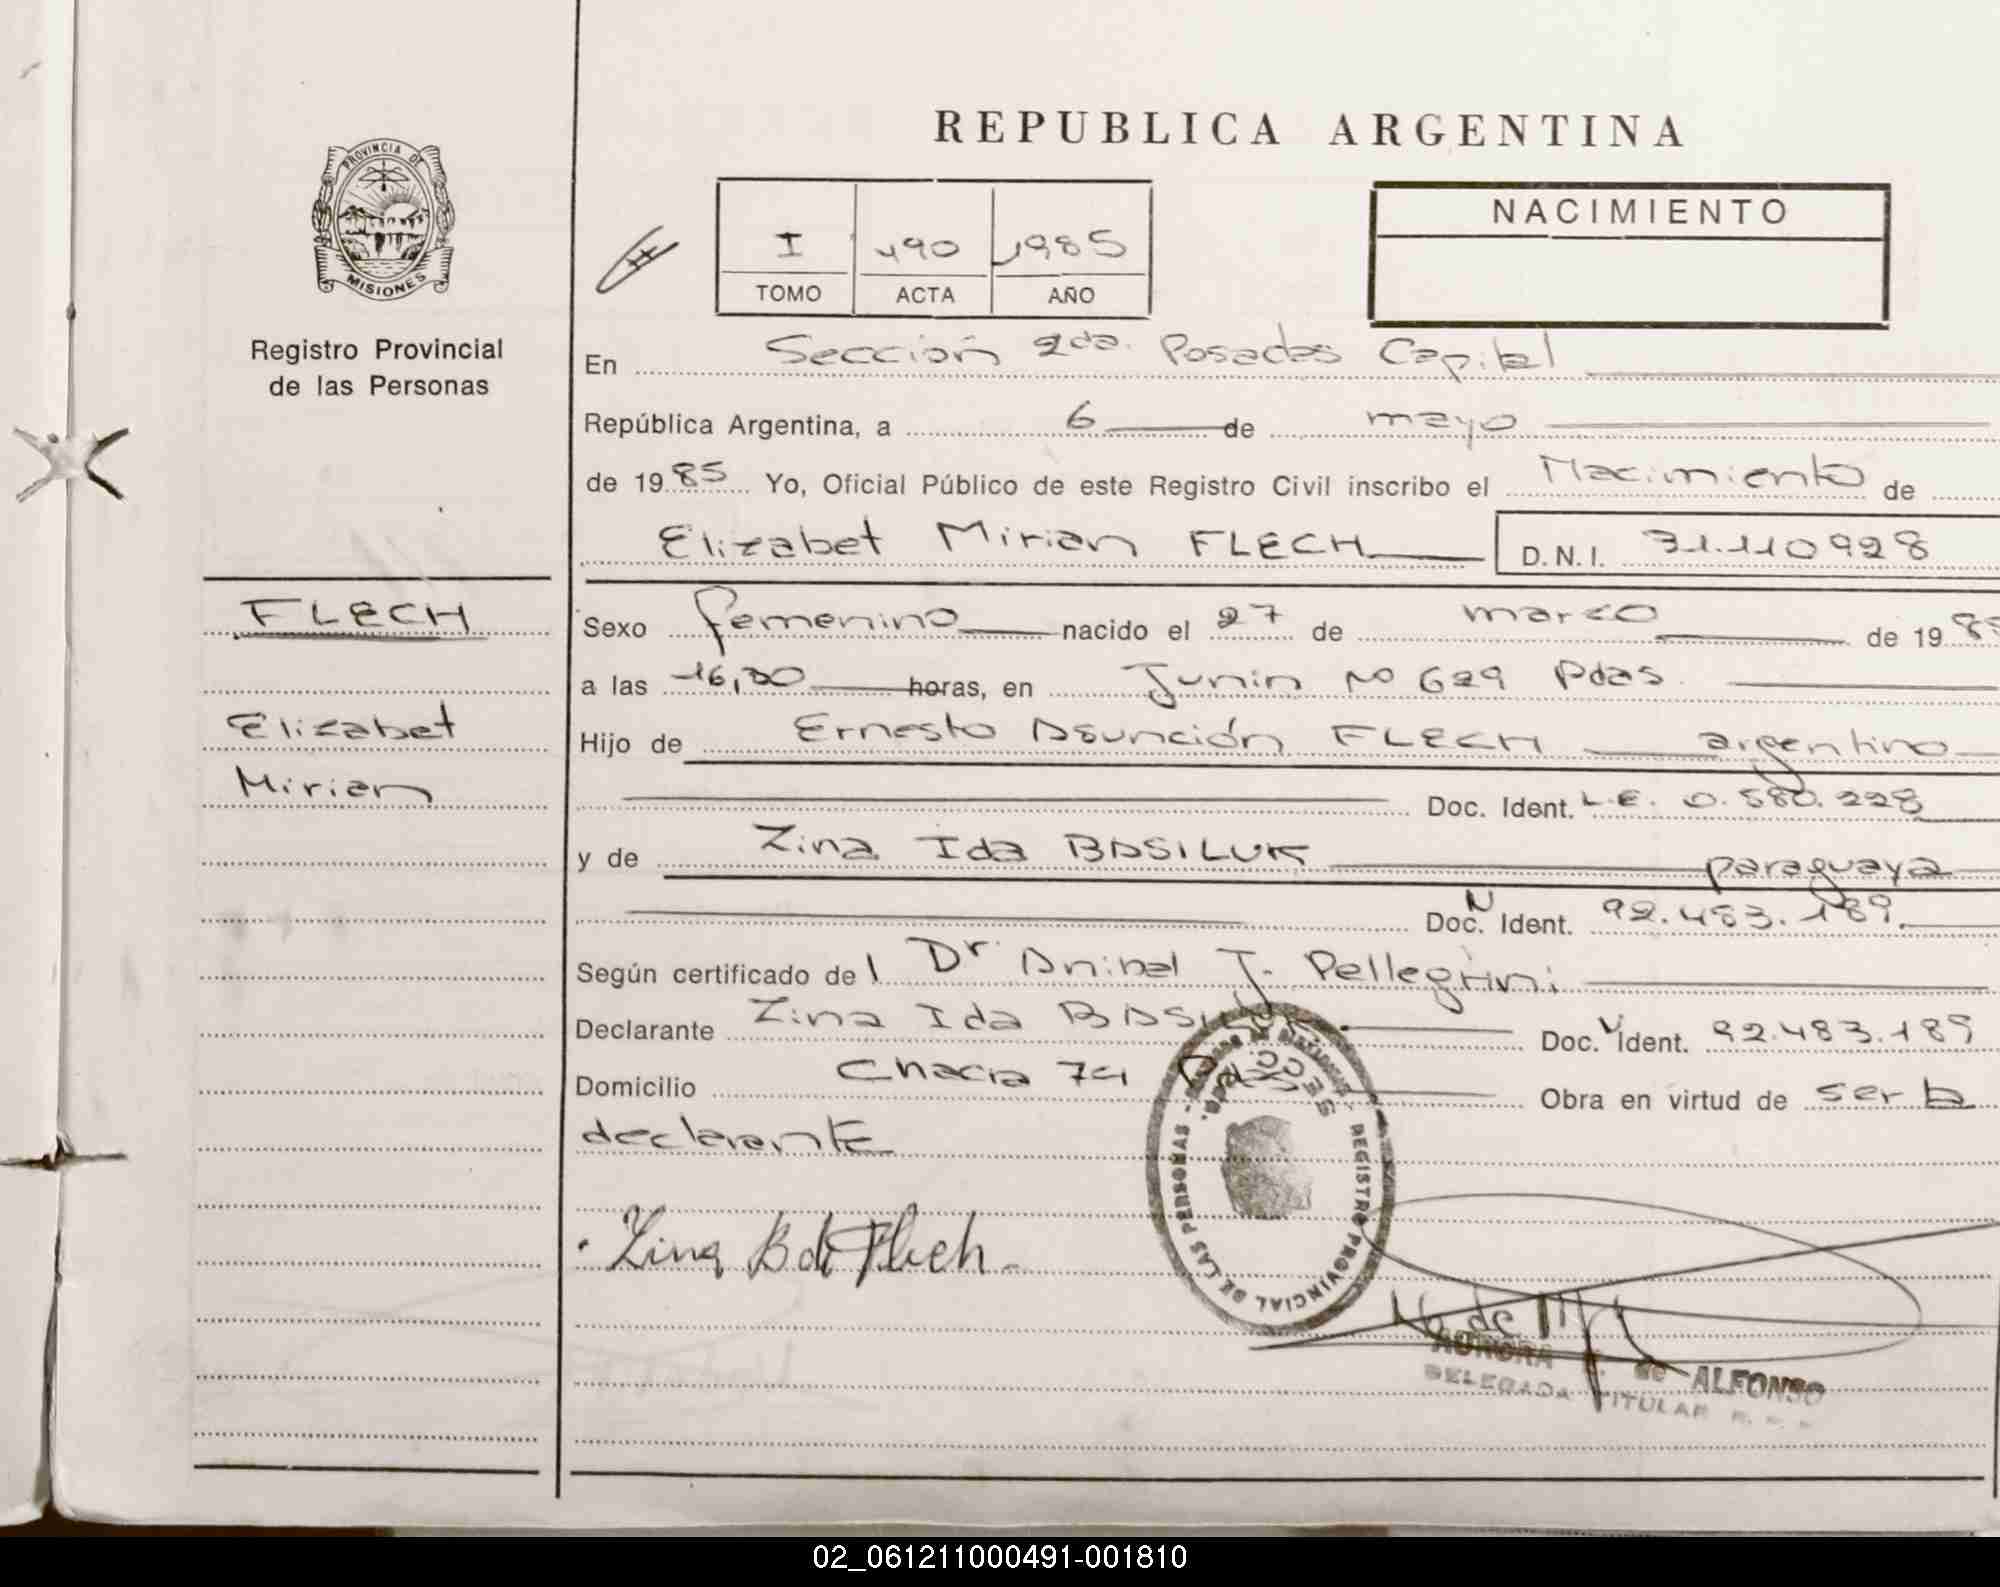 REPUBLICA ARGENTINA
PROVINCIA DE
MISIONES
Registro Provincial
de las Personas
I 490 1985
TOMO ACTA AÑO
NACIMIENTO
En Sección 2da. Posadas Capital
República Argentina, a 6 de mayo
de 1985 Yo, Oficial Público de este Registro Civil inscribo el Nacimiento de
Elizabet Mirian FLECH D.N.I. 31.110928
FLECH
Elizabet
Mirian
Sexo femenino nacido el 27 de marzo de 198
a las 16,30 horas, en Junin No 629 Pdas.
Hijo de Ernesto Asunción FLECH argentino
Doc. Ident. L.E. 0.580.228
y de Zina Ida BASILUK paraguaya
Doc. N Ident. 92.483.189.
Según certificado del Dr. Anibal J. Pellegrini
Declarante Zina Ida BASILUK Doc. Ident. 92.483.189
Domicilio Chacra 74 Pdas Obra en virtud de ser la
declarante
Zina B de Flech.
REGISTRO PROVINCIAL DE LAS PERSONAS
SECC.
AURORA de ALFONSO
DELEGADA TITULAR
02_061211000491-001810